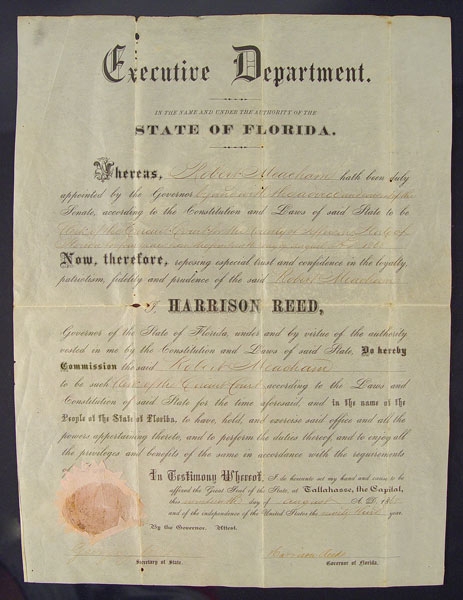 Executive Department.
IN THE NAME AND UNDER THE AUTHORITY OF THE
STATE OF FLORIDA.
Whereas, Robert Meacham hath been duly
appointed by the Governor by and with the advice and consent of the
Senate, according to the Constitution and Laws of said State to be
Clerk of the Circuit Court
Now, therefore, reposing especial trust and confidence in the loyalty,
patriotism, fidelity and prudence of the said Robert Meacham
I, HARRISON REED,
Governor of the State of Florida, under and by virtue of the authority
vested in me by the Constitution and Laws of said State, Do hereby
Commission the said Robert Meacham
to be such Clerk of the Circuit Court according to the Laws and
Constitution of said State for the time aforesaid, and in the name of the
People of the State of Florida, to have, hold, and exercise said office and all the
powers appertaining thereto, and to perform the duties thereof, and to enjoy all
the privileges and benefits of the same in accordance with the requirements
of
In Testimony Whereof, I do hereunto set my hand and cause to be
affixed the Great Seal of the State, at Tallahasse, the Capital,
this day of August A. D. 186
and of the independence of the United States the ninety third year.
By the Governor. Attest.
Harrison Reed
Secretary of State.
Governor of Florida.